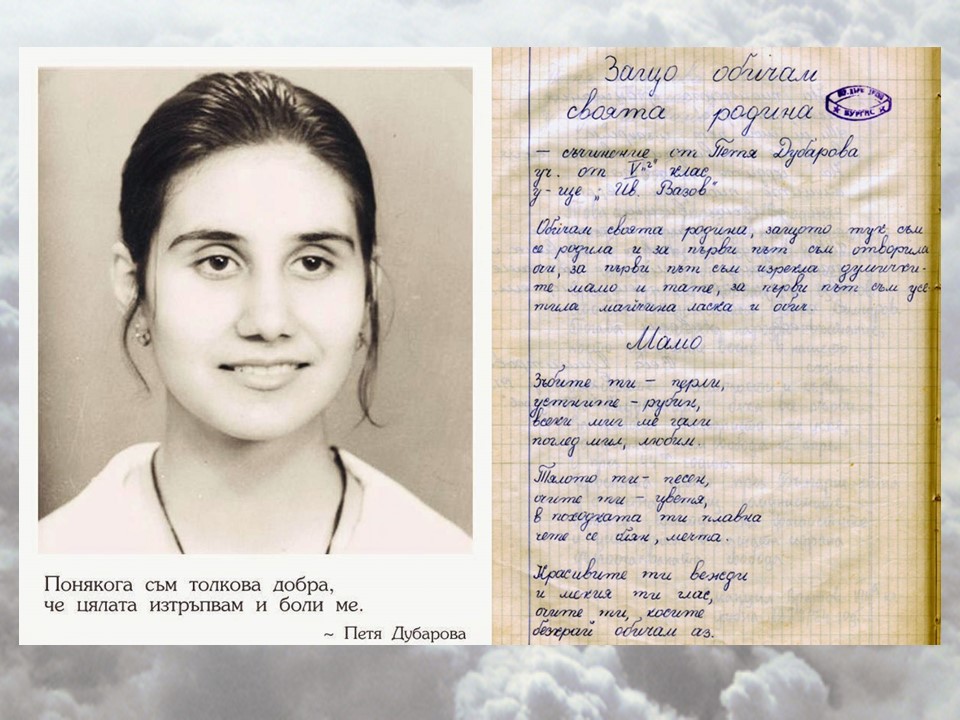 Понякога съм толкова добра,
че цялата изтръпвам и боли ме.
~ Петя Дубарова
Защо обичам
своята родина
БУРГАС
— съчинение от Петя Дубарова
уч. от V "г" клас
у-ще „Ив. Вазов"
Обичам своята родина, защото тук съм
се родила и за първи път съм отворила
очи, за първи път съм изрекла думички-
те мамо и тате, за първи път съм усе-
тила майчина ласка и обич.
Мамо
Зъбите ти – перли,
устните – рубин,
всеки миг ме гали
поглед мил, любим.
Тялото ти – песен,
очите ти – цветя,
в походката ти плавна
чете се блян, мечта.
Красивите ти вежди
и мекия ти глас,
очите ти, косите
безкрай обичам аз.